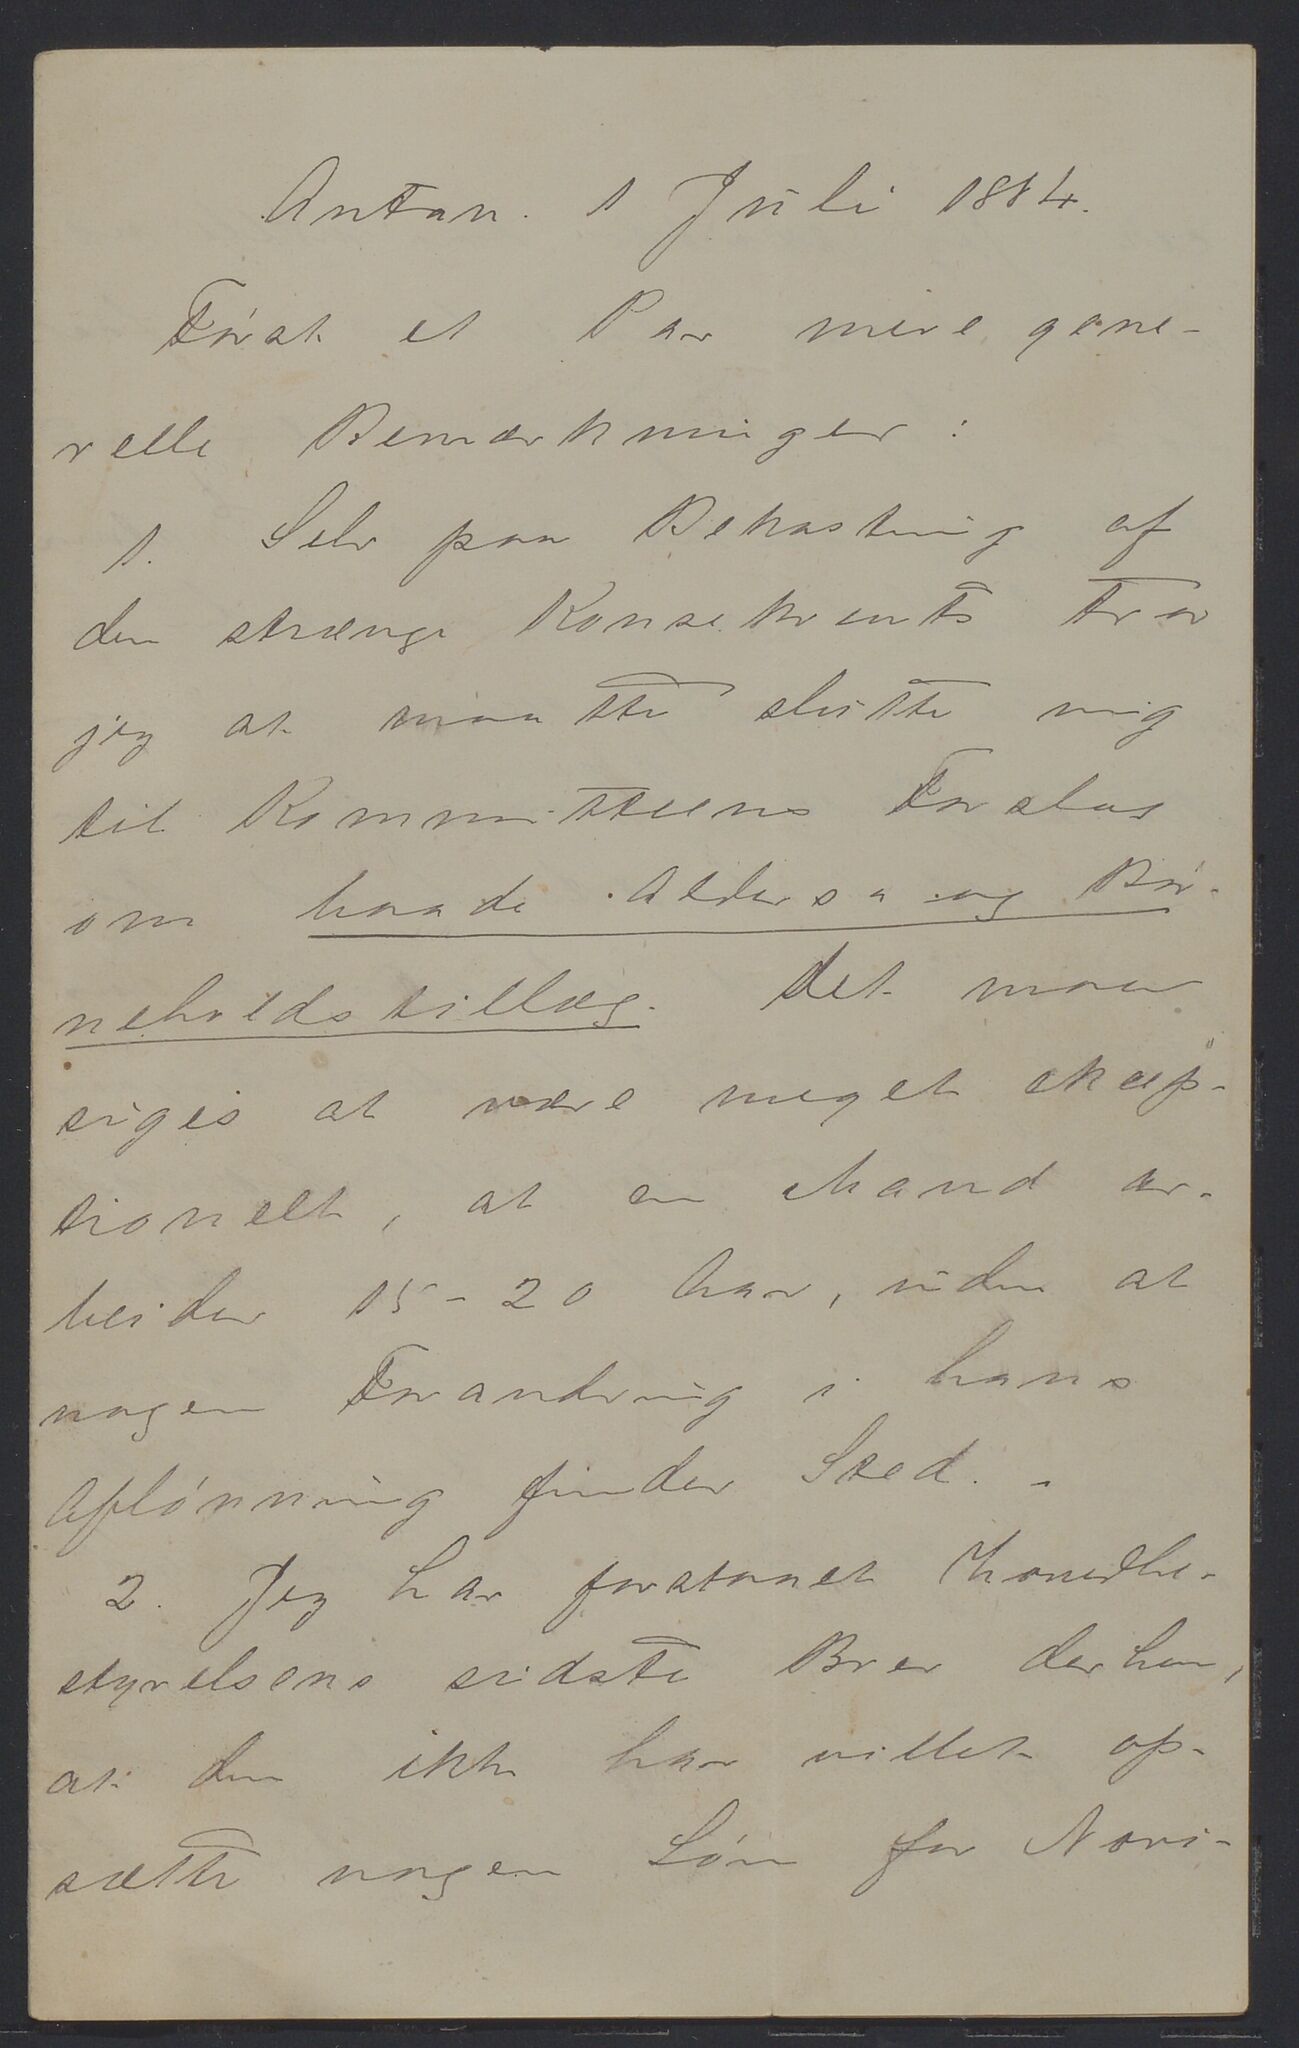 Antan. 1 Juli 1884.
Først et Par mere gene-
relle Bemærkninger:
1. Selv paa Bekostning af
den strænge Konsekvents tror
jeg at maatte slutte mig
til Kommitteens Forslag
om baade Alders- og Bør-
neholdstillæg. Det maa
siges at være meget excep-
tionelt, at en Mand ar-
beider 15-20 Aar, uden at
nogen Forandring i hans
Aflønning finder Sted. -
2. Jeg har forstaaet Hovedbe-
styrelsens sidste Brev derhen,
at den ikke har villet op-
sætte nogen Løn for Novi-